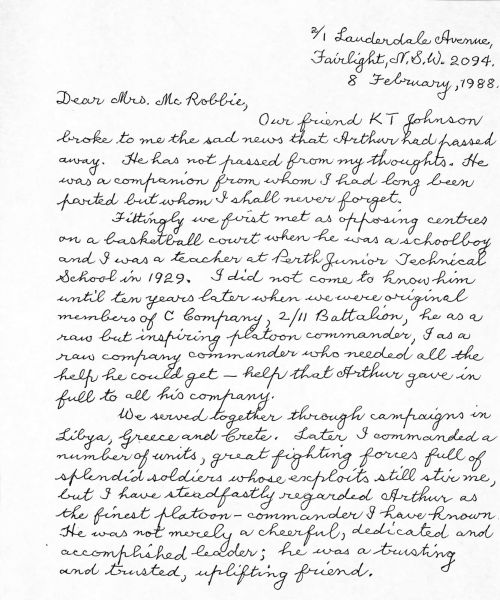 2/1 Lauderdale Avenue,
Fairlight, N.S.W. 2094.
8 February, 1988.
Dear Mrs. McRobbie,
Our friend KT Johnson
broke to me the sad news that Arthur had passed
away. He has not passed from my thoughts. He
was a companion from whom I had long been
parted but whom I shall never forget.
Fittingly we first met as opposing centres
on a basketball court when he was a schoolboy
and I was a teacher at Perth Junior Technical
School in 1929. I did not come to know him
until ten years later when we were original
members of C Company, 2/11 Battalion, he as a
raw but inspiring platoon commander, I as a
raw company commander who needed all the
help he could get — help that Arthur gave in
full to all his company.
We served together through campaigns in
Libya, Greece and Crete. Later, I commanded a
number of units, great fighting forces full of
splendid soldiers whose exploits still stir me,
but I have steadfastly regarded Arthur as
the finest platoon-commander I have known.
He was not merely a cheerful, dedicated and
accomplished leader; he was a trusting
and trusted, uplifting friend.